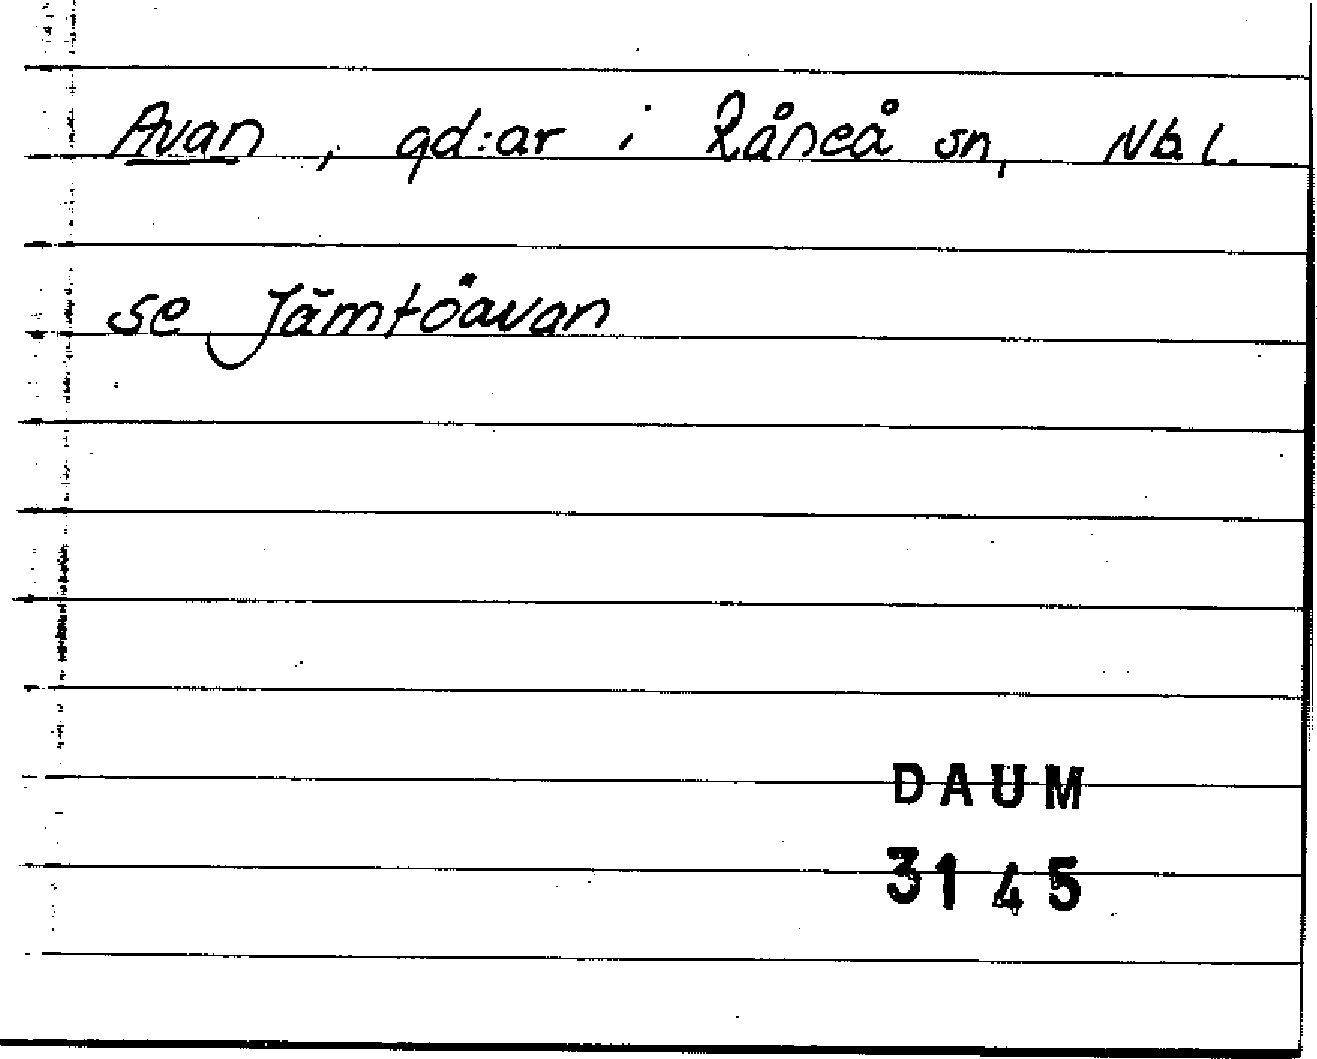 Avan, gd:ar i Råneå sn, Nb. l.
se Jämtöavan
DAUM
3145